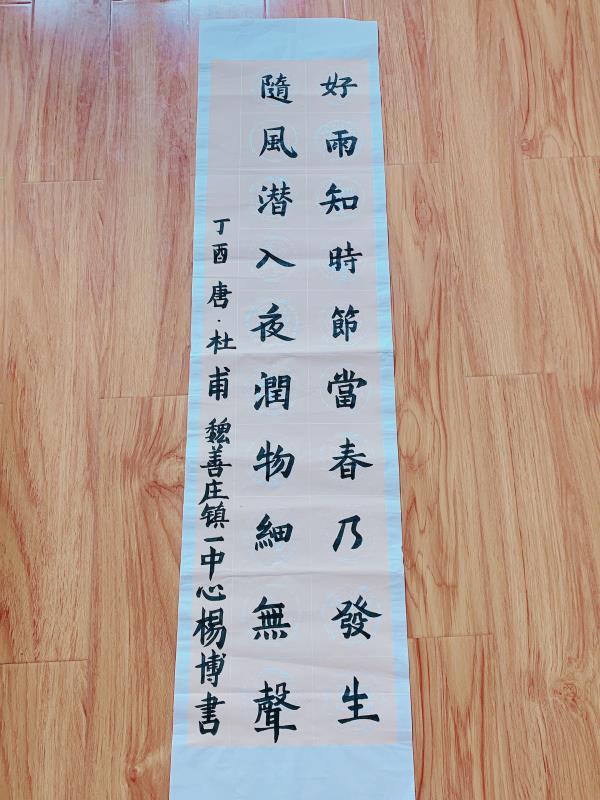 好雨知時節當春乃發生
隨風潛入夜潤物細無聲
丁酉 唐·杜甫 魏善庄镇一中心楊博書